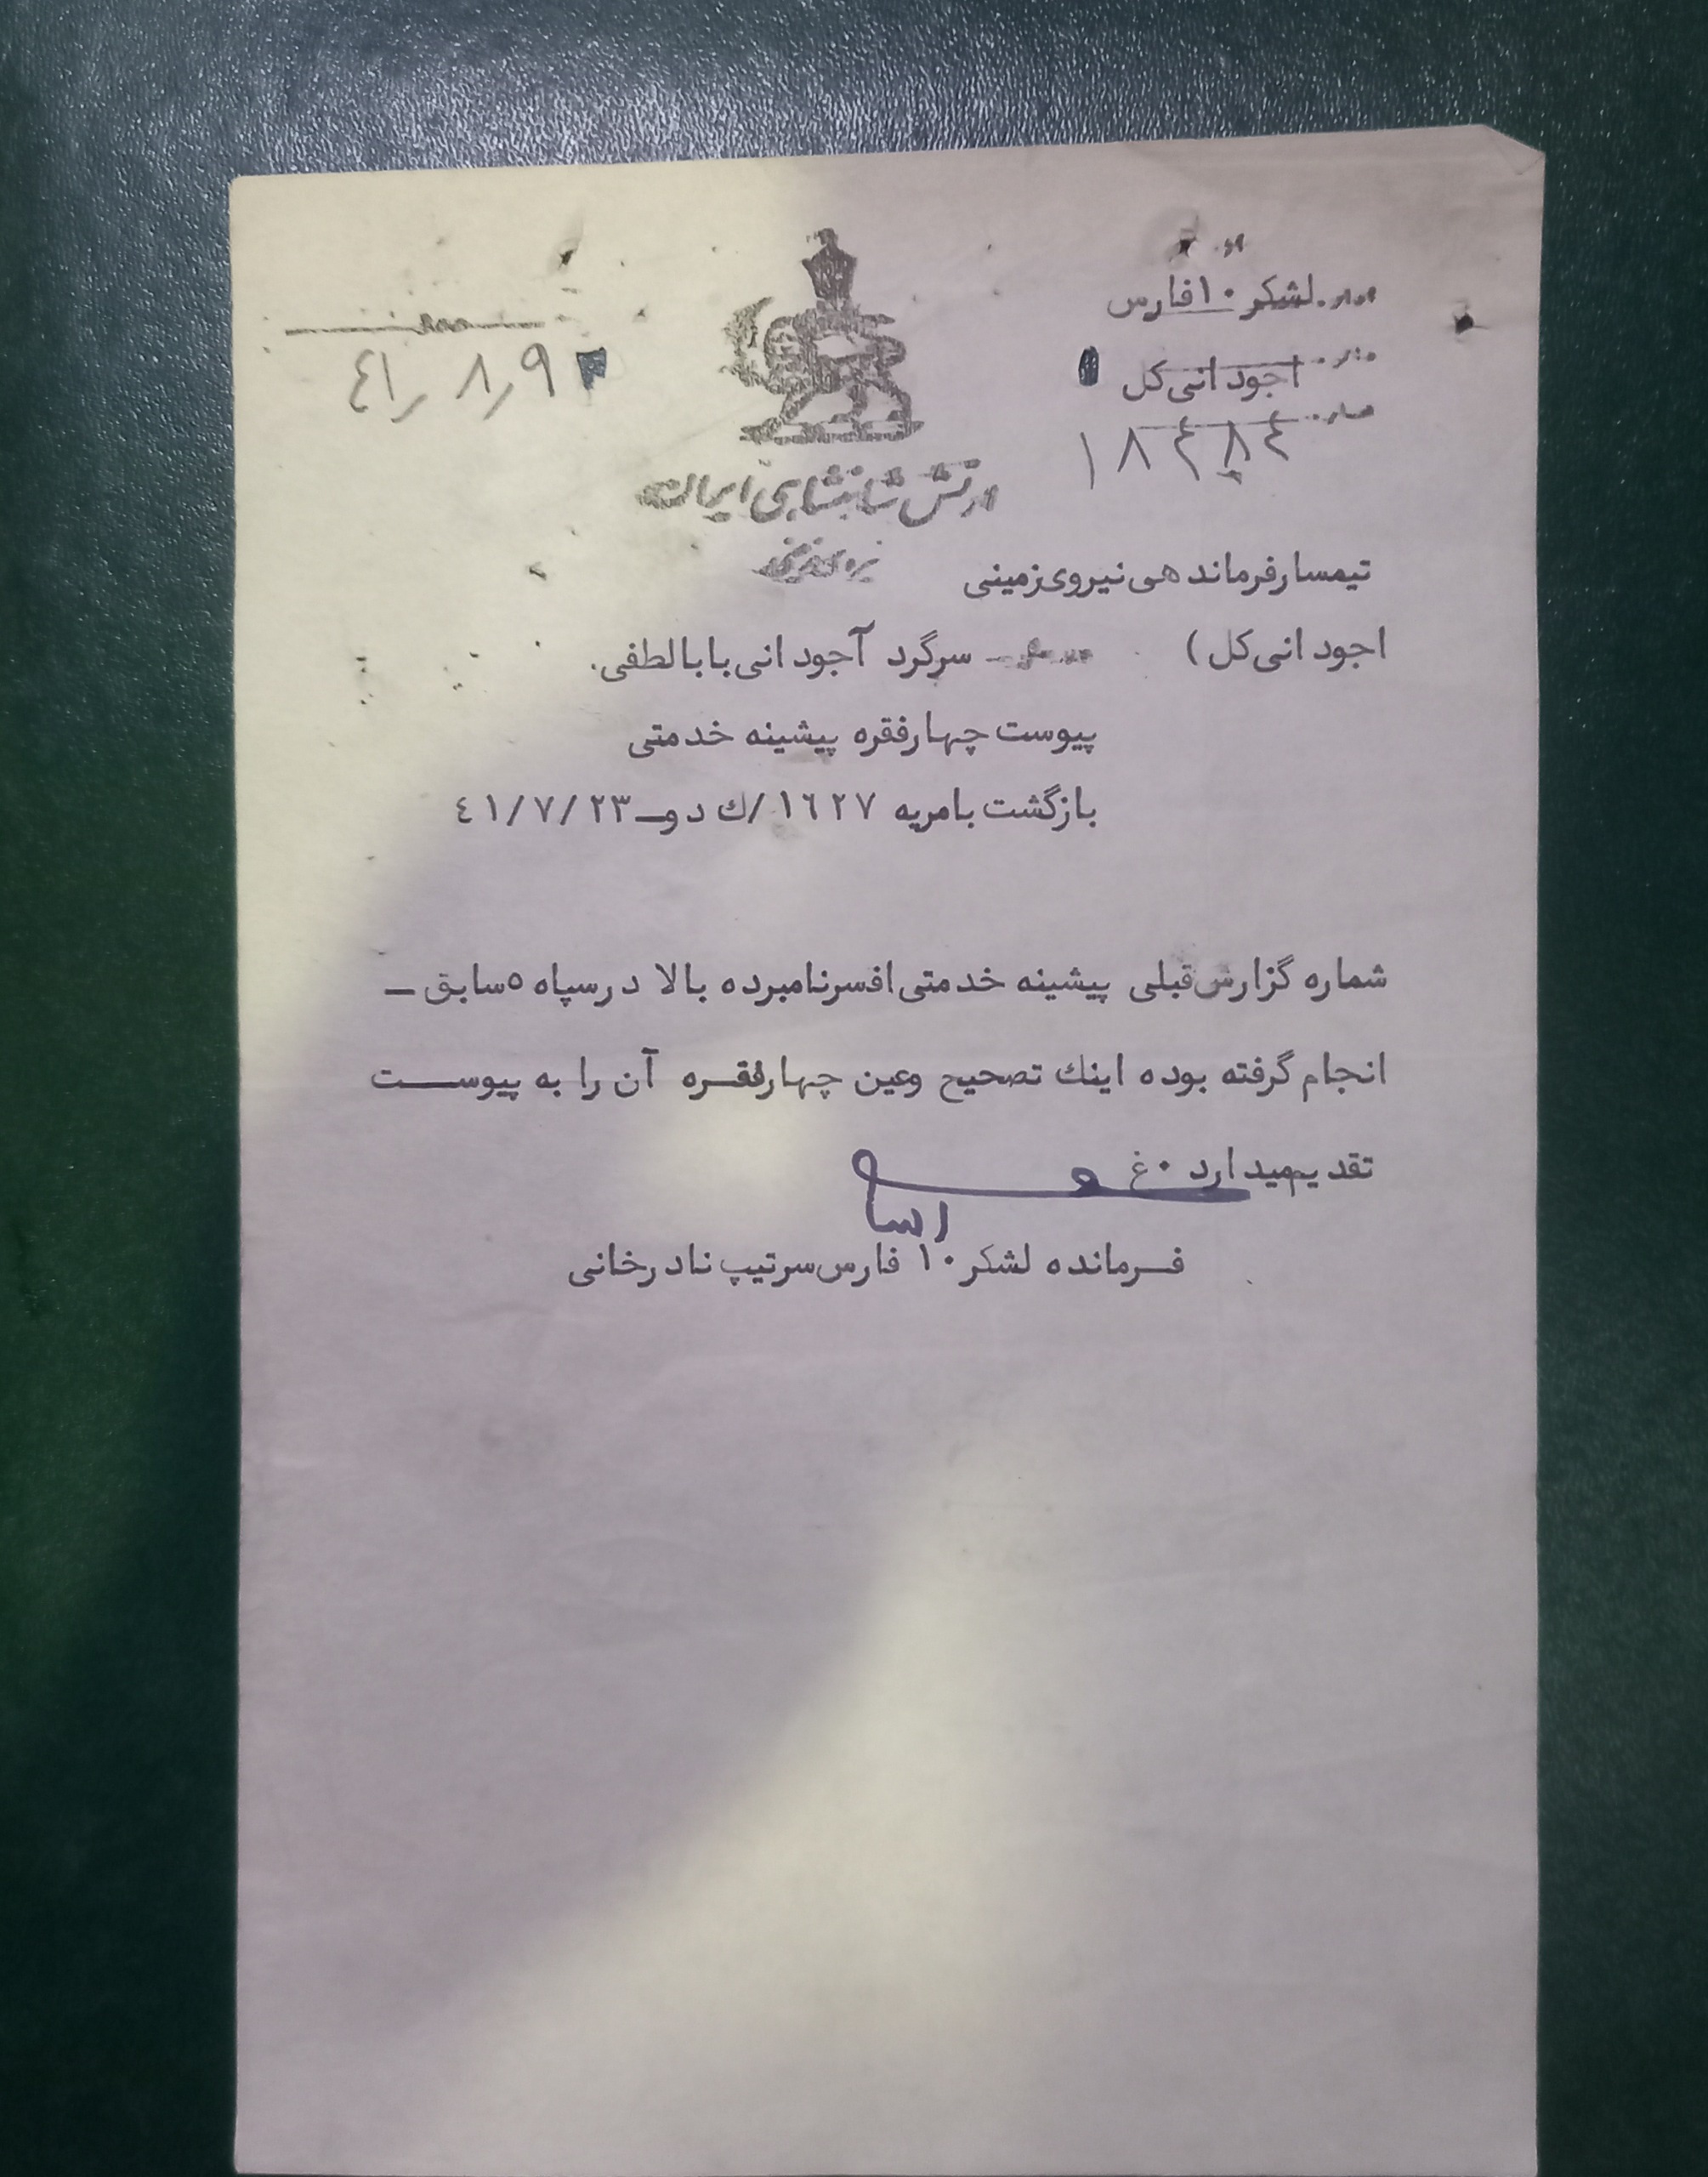 لشکر ۱۰ فارس
اجودانی کل
۱۸۴۸۴
۴۱٫۸٫۹
ارتش شاهنشاهی ایران
تیمسار فرماندهی نیروی زمینی
اجودانی کل )
سرگرد آجودانی بابا لطفی.
پیوست چهار فقره پیشینه خدمتی
بازگشت بامریه ۱۶۲۷/ك د و ـ ۴۱/۷/۲۳
شماره گزارش قبلی پیشینه خدمتی افسر نامبرده بالا در سپاه ۵ سابق ـ
انجام گرفته بوده اینك تصحیح وعین چهار فقره آن را به پیوست
تقدیم میدارد ۰ غ
فرمانده لشکر ۱۰ فارس سرتیپ نادر خانی